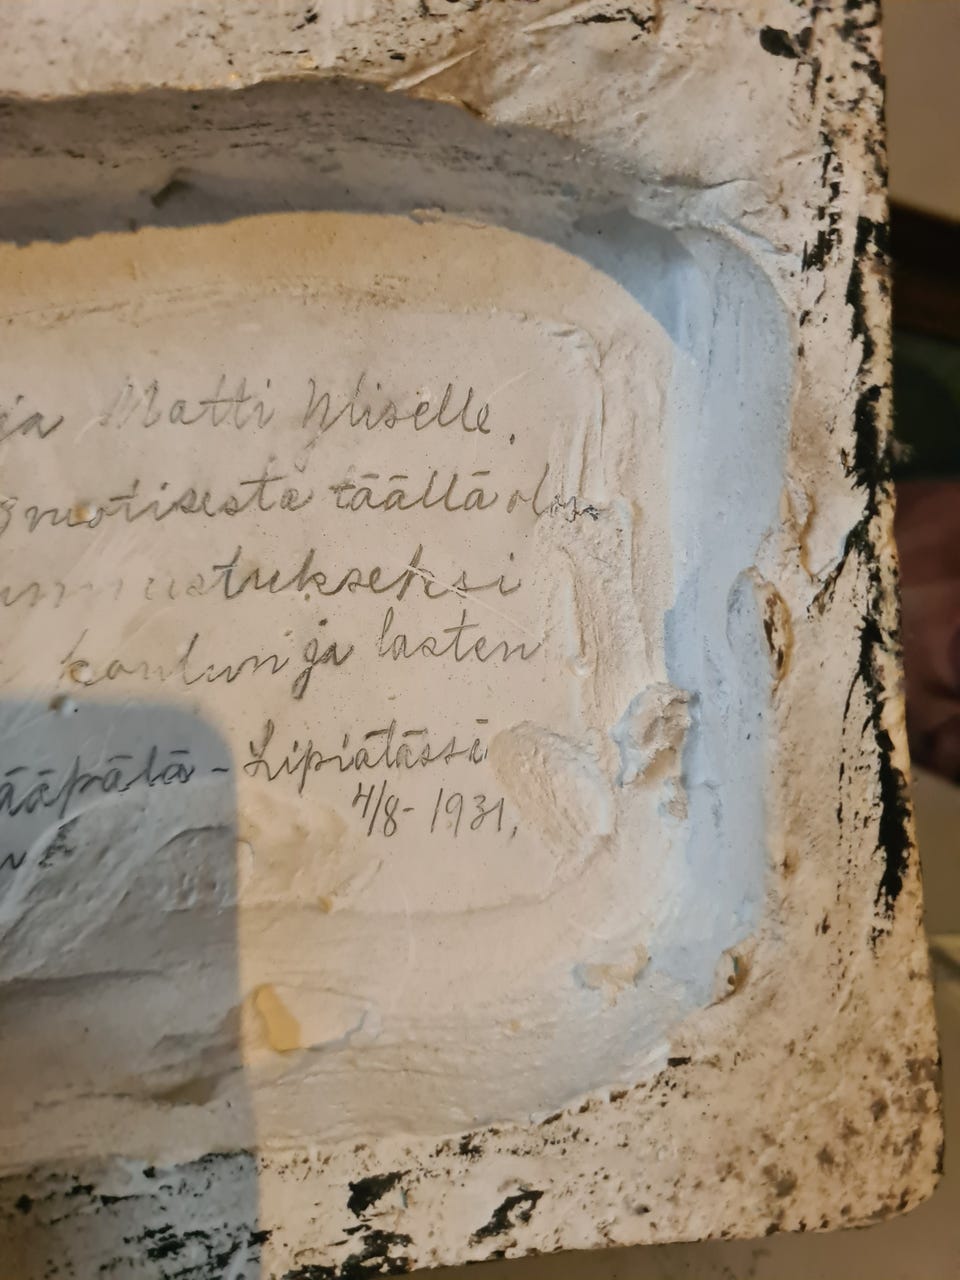 ja Matti Yliselle.
vuotisesta täällä olos
muistukseksi
koulun ja lasten
ääpälä - Lipiätässä
4/8 - 1931.